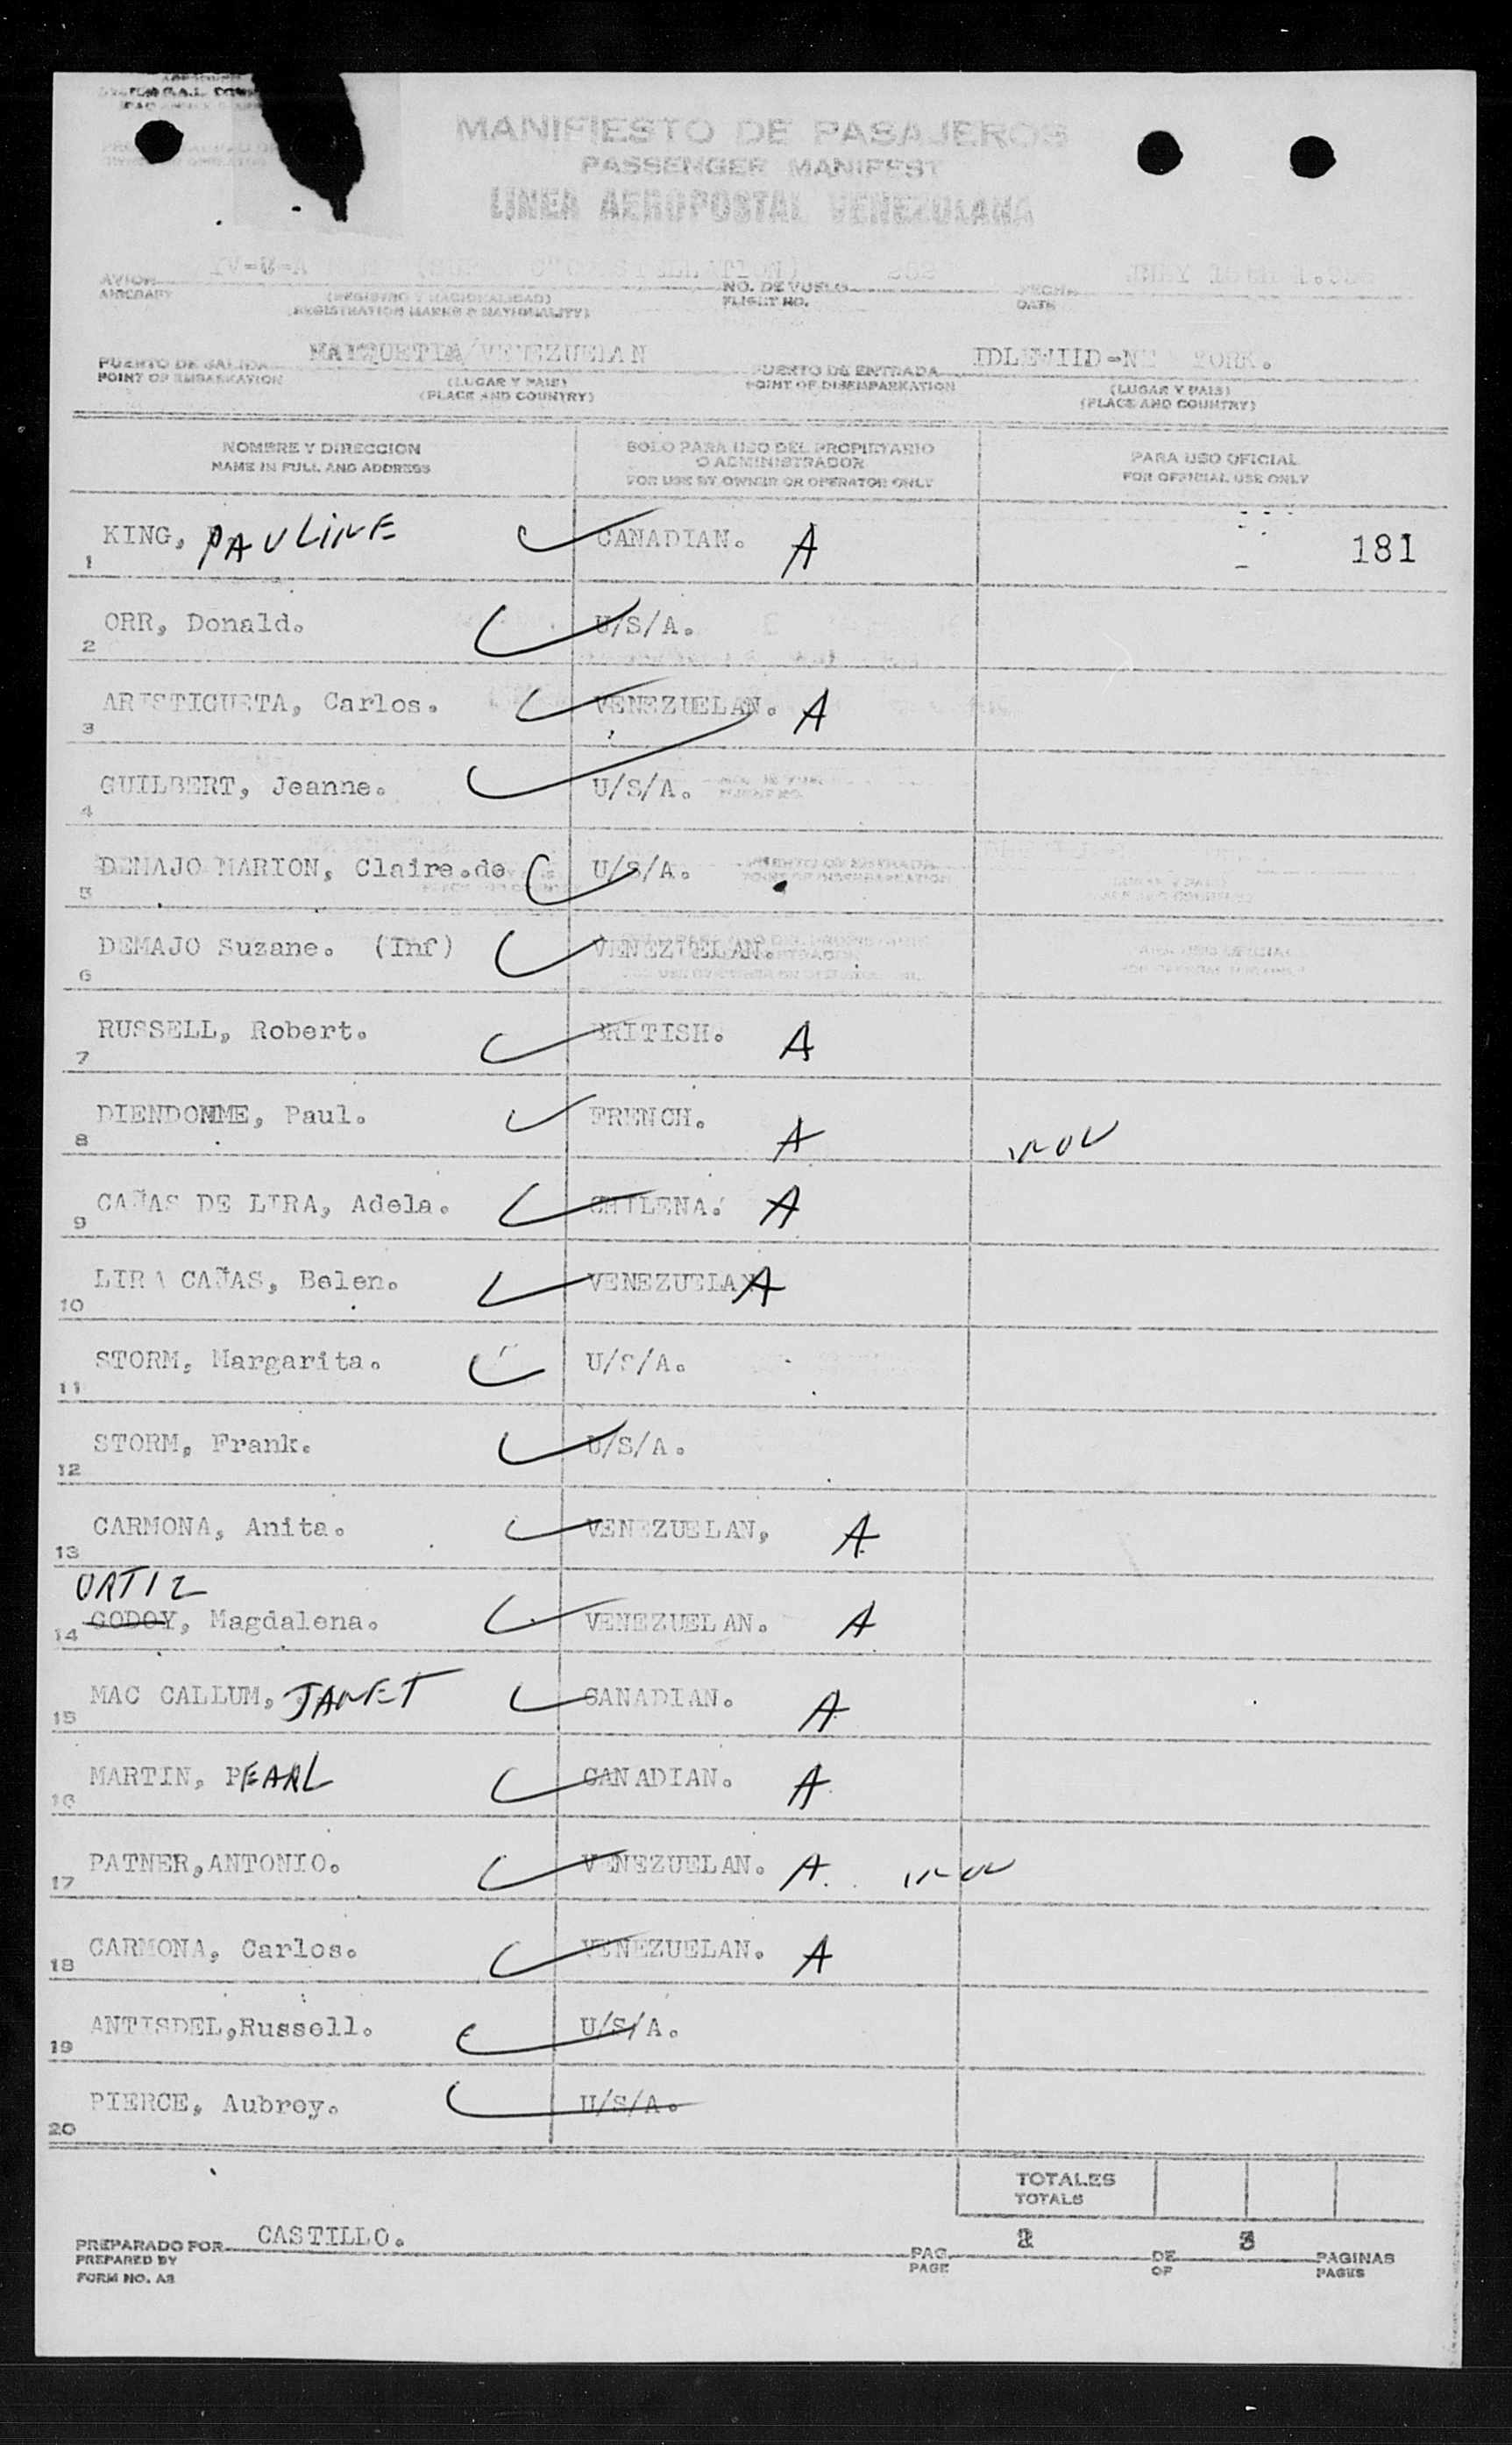 MANIFIESTO DE PASAJEROS
PASSENGER MANIFEST
LINEA AEROPOSTAL VENEZOLANA
AVION
AIRCRAFT
(REGISTRO Y NACIONALIDAD)
(REGISTRATION MARKS & NATIONALITY)
NO. DE VUELO
FLIGHT NO.
FECHA
DATE
PUERTO DE SALIDA MAIQUETIA/VENEZUELAN
POINT OF EMBARKATION
(LUGAR Y PAIS)
(PLACE AND COUNTRY)
PUERTO DE ENTRADA IDLEWILD-NE YORK.
POINT OF DISEMBARKATION
(LUGAR Y PAIS)
(PLACE AND COUNTRY)
NOMBRE Y DIRECCION
NAME IN FULL AND ADDRESS
SOLO PARA USO DEL PROPIETARIO
O ADMINISTRADOR
FOR USE BY OWNER OR OPERATOR ONLY
PARA USO OFICIAL
FOR OFFICIAL USE ONLY
1 KING, PAULINE CANADIAN. A 181
2 ORR, Donald. U/S/A.
3 ARISTIGUETA, Carlos. VENEZUELAN. A
4 GUILBERT, Jeanne. U/S/A.
5 DEMAJO MARION, Claire.de U/S/A.
6 DEMAJO Suzane. (Inf) VENEZUELAN.
7 RUSSELL, Robert. BRITISH. A
8 DIENDOMME, Paul. FRENCH. A
9 CAÑAS DE LIRA, Adela. CHILENA. A
10 LIRA CAÑAS, Belen. VENEZUELAN A
11 STORM, Margarita. U/S/A.
12 STORM, Frank. U/S/A.
13 CARMONA, Anita. VENEZUELAN, A
ORTIZ
14 GODOY, Magdalena. VENEZUELAN. A
15 MAC CALLUM, JANET CANADIAN. A
16 MARTIN, PEARL CANADIAN. A
17 PATNER,ANTONIO. VENEZUELAN. A
18 CARMONA, Carlos. VENEZUELAN. A
19 ANTISDEL,Russell. U/S/A.
20 PIERCE, Aubrey. U/S/A.
TOTALES
TOTALS
PREPARADO POR CASTILLO.
PREPARED BY
FORM NO. A3
PAG. 2 DE 3 PAGINAS
PAGE OF PAGES